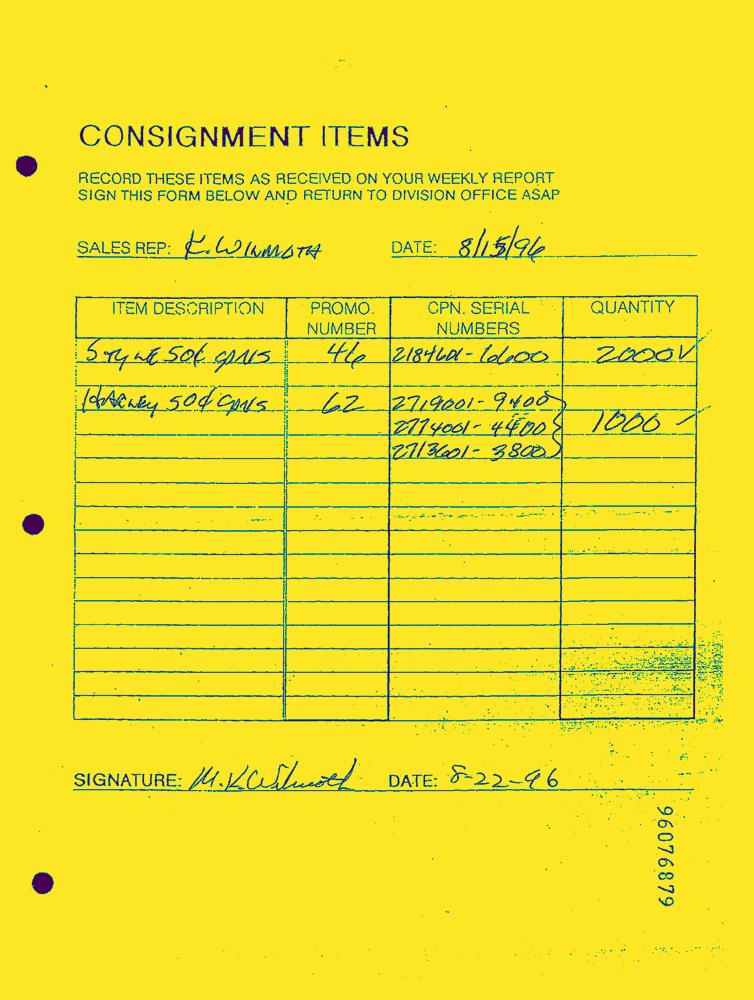 CONSIGNMENT ITEMS
RECORD THESE ITEMS AS RECEIVED ON YOUR WEEKLY REPORT
SIGN THIS FORM BELOW AND RETURN TO DIVISION OFFICE ASAP
SALES REP: K. WILMOTH DATE: 8/15/96
ITEM DESCRIPTION PROMO. NUMBER CPN. SERIAL NUMBERS QUANTITY
50¢ CPNS 46 2184601-16600 2000
50¢ CPNS 62 2719001-9400
2774001-4400 1000
2713601-3800
SIGNATURE: M. K. Wilmoth DATE: 8-22-96
96076879